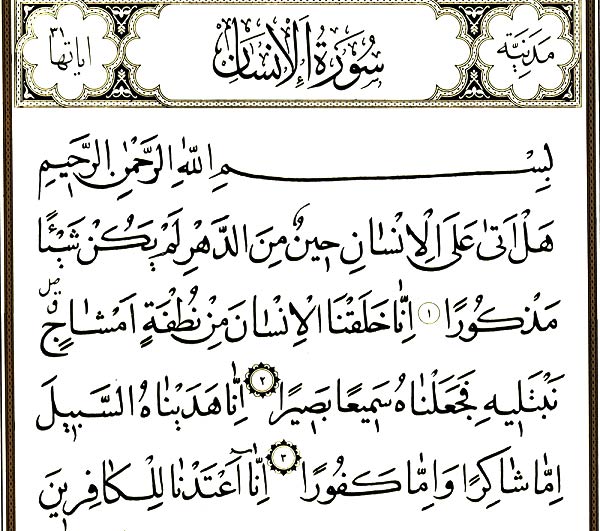 مَدَنِيَّة سُورَةُ الْإِنْسَانِ اياتها ٣١
بِسْمِ اللّٰهِ الرَّحْمٰنِ الرَّحِيمِ
هَلْ اَتٰى عَلَى الْاِنْسَانِ حِينٌ مِنَ الدَّهْرِ لَمْ يَكُنْ شَيْـًٔا
مَذْكُورًا ١ اِنَّا خَلَقْنَا الْاِنْسَانَ مِنْ نُطْفَةٍ اَمْشَاجٍ ق صل
نَبْتَلِيهِ فَجَعَلْنَاهُ سَمِيعًا بَصِيرًا ٢ اِنَّا هَدَيْنَاهُ السَّبِيلَ
اِمَّا شَاكِرًا وَاِمَّا كَفُورًا ٣ اِنَّٓا اَعْتَدْنَا لِلْكَافِرِينَ